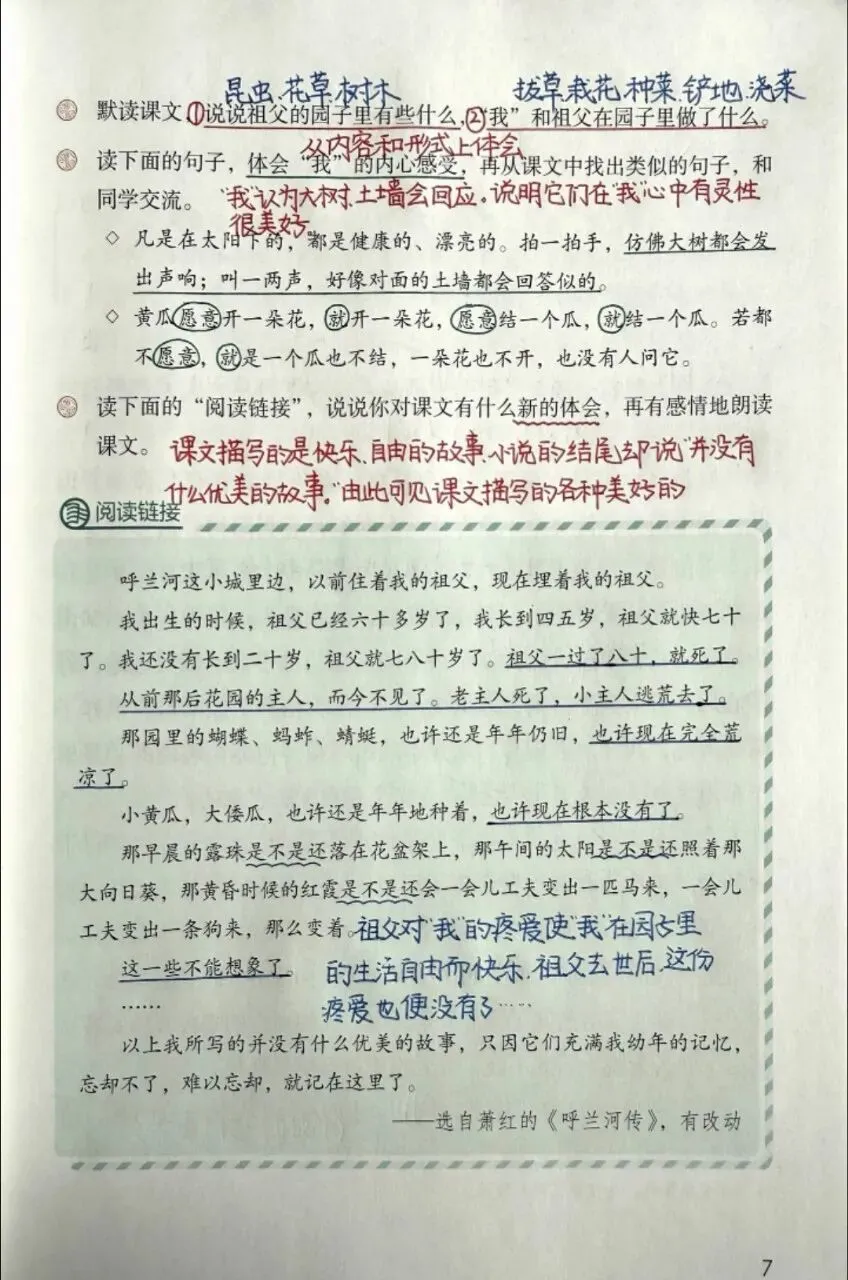 昆虫、花草、树木 拔草、栽花、种菜、铲地、浇菜
默读课文,①说说祖父的园子里有些什么,②“我”和祖父在园子里做了什么。
从内容和形式上体会
读下面的句子，体会“我”的内心感受，再从课文中找出类似的句子，和
同学交流。 “我”认为大树、土墙会回应，说明它们在“我”心中有灵性
很美好。
◇ 凡是在太阳下的，都是健康的、漂亮的。拍一拍手，仿佛大树都会发
出声响；叫一两声，好像对面的土墙都会回答似的。
◇ 黄瓜愿意开一朵花，就开一朵花，愿意结一个瓜，就结一个瓜。若都
不愿意，就是一个瓜也不结，一朵花也不开，也没有人问它。
读下面的“阅读链接”，说说你对课文有什么新的体会，再有感情地朗读
课文。 课文描写的是快乐、自由的故事、小说的结尾却说“并没有
什么优美的故事。”由此可见课文描写的各种美好的
阅读链接
呼兰河这小城里边，以前住着我的祖父，现在埋着我的祖父。
我出生的时候，祖父已经六十多岁了，我长到四五岁，祖父就快七十
了。我还没有长到二十岁，祖父就七八十岁了。祖父一过了八十，就死了。
从前那后花园的主人，而今不见了。老主人死了，小主人逃荒去了。
那园里的蝴蝶、蚂蚱、蜻蜓，也许还是年年仍旧，也许现在完全荒
凉了。
小黄瓜，大倭瓜，也许还是年年地种着，也许现在根本没有了。
那早晨的露珠是不是还落在花盆架上，那午间的太阳是不是还照着那
大向日葵，那黄昏时候的红霞是不是还会一会儿工夫变出一匹马来，一会儿
工夫变出一条狗来，那么变着。祖父对“我”的疼爱使“我”在园子里
这一些不能想象了。 的生活自由而快乐、祖父去世后、这份
…… 疼爱也便没有了……
以上我所写的并没有什么优美的故事，只因它们充满我幼年的记忆，
忘却不了，难以忘却，就记在这里了。
——选自萧红的《呼兰河传》，有改动
7